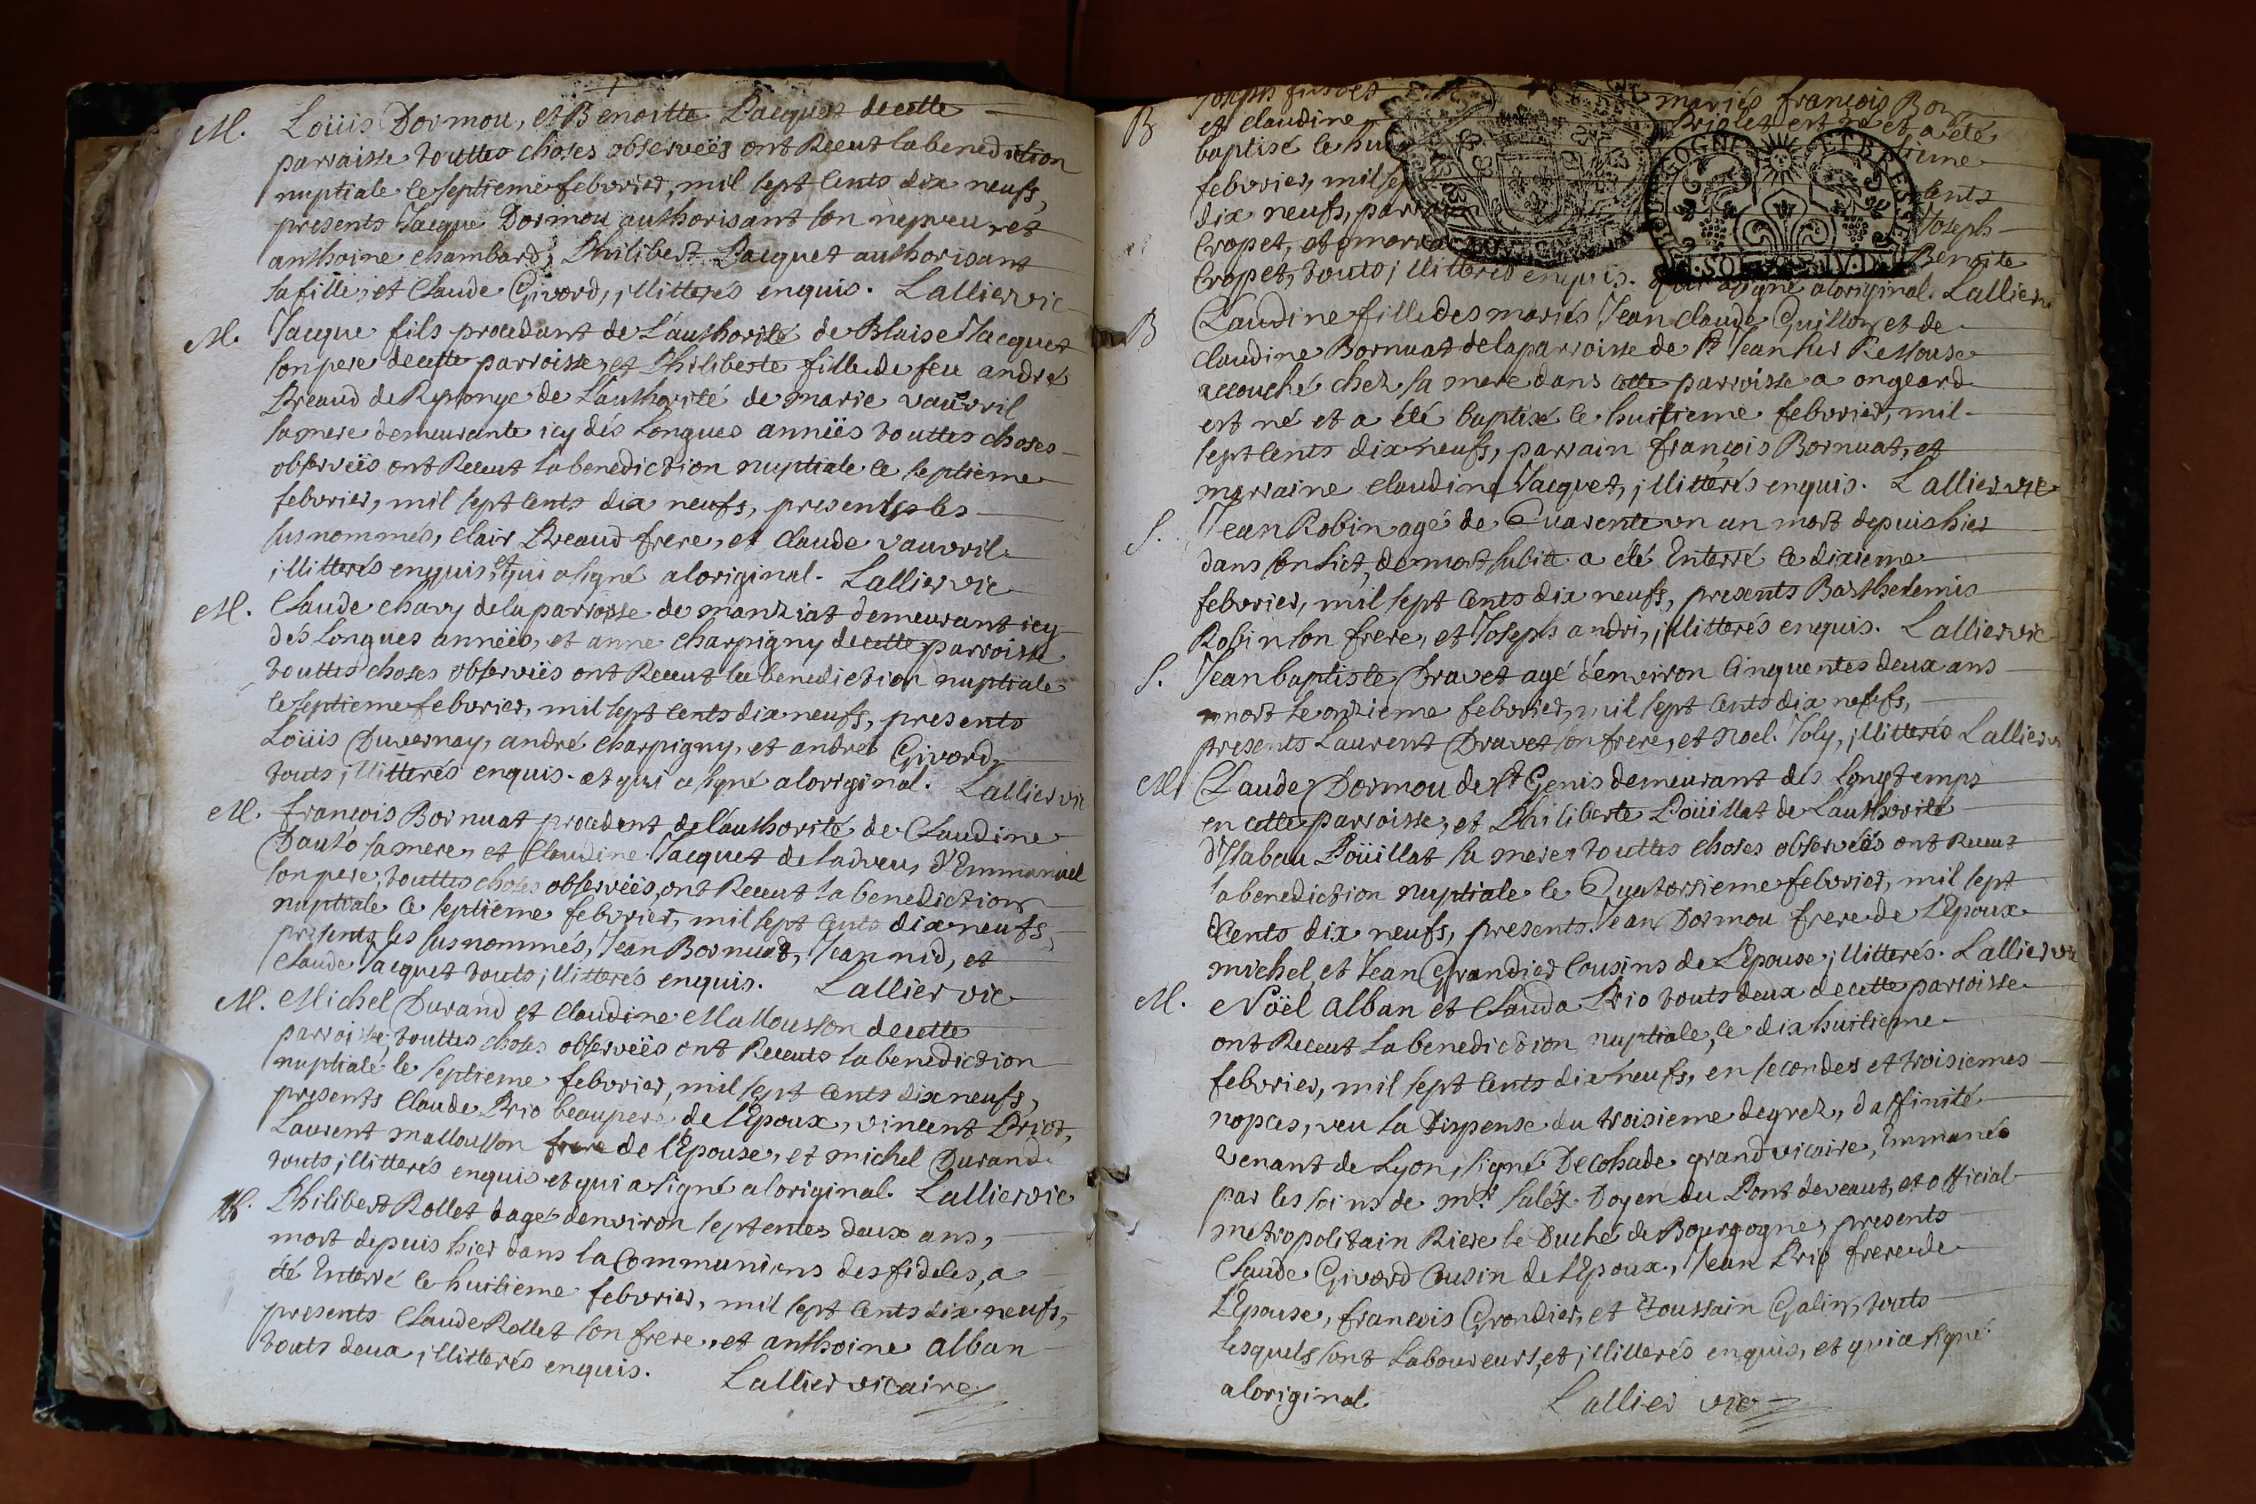 M. Loüis Dormou, et Benoitte Pacquet de cette
parroisse touttes choses observeés ont Receut la benediction
nuptiale le septieme febvrier, mil sept cents dix neufs,
presents Jacque Dormou authorisant son nepveu, et
anthoine chambard, Philibert Pacquet authorisant
sa fille, et Claude Givord, illitterés enquis. Lallier vic
M. Jacque fils procedant de L'authorité de Blaise Jacquet
son pere de cette parroisse, et Philiberte fille de feu andré
Breaud de Reponge de L'authorité de marie vauvril
sa mere demeurante icy dés Longues anneës touttes choses
observeës ont Receut la benediction nuptiale le septieme
febvrier, mil sept cents dix neufs, presents les
susnommés, Clair Breaud frere, et Claude vauvril
illitterés enquis, et qui a signé a loriginal. Lallier vic
M. Claude chavy de la parroisse de manziat demeurant icy
dés Longues anneës, et anne charpigny de cette parroisse
touttes choses observeës ont Receut la benediction nuptiale
le septieme febvrier, mil sept cents dix neufs, presents
Loüis Duvernay, andré charpigny, et andre Givord
touts illitterés enquis. et qui a signé a loriginal. Lallier vic
M. françois Bornuat procedent de l'authorité de Claudine
Dauto sa mere, et Claudine Jacquet de ladveu d'Emmanuel
son pere, touttes choses observeës, ont Receut la benediction
nuptiale le septieme febvrier, mil sept cents dix neufs,
presents les susnommés, Jean Bornuat, Jean nid, et
Claude Jacquet touts illitterés enquis. Lallier vic
M. Michel Durand et Claudine Mallousson de cette
parroisse touttes choses observeës ont Receuts la benediction
nuptiale le septieme febvrier, mil sept cents dix neufs,
presents Claude Brio beaupere de l'Epoux, vincent Briot,
Laurent mallousson frere de l'Epouse, et michel Durand
touts illitterés enquis et qui a signé a loriginal. Lallier vic
Philibert Rollet dagé denviron septentes deux ans,
mort depuis hier dans la Communions des fideles, a
été Enterré le huitieme febvrier, mil sept cents dix neufs,
presents Claude Rollet son frere, et anthoine alban
touts deux illitterés enquis. Lallier vicaire
B Joseph fils des mariés françois Bor
et claudine Briolet est né et a été
baptisé le hui tieme
febvrier, mil se cents
dix neufs, parrain Joseph
Cropet, et marrai Benoite
Cropet, touts illitterés enquis. qui a signé a loriginal. Lallier
B Claudine fille des mariés Jean claude Guillon et de
claudine Bornuat de la parroisse de St Jean sur Ressouse
accouché chez sa mere dans cette parroisse a ongeard
est né et a été baptisé le huitieme febvrier, mil
sept cents dix neufs, parrain françois Bornuat, et
marraine claudine Jacquet, illitterés enquis. Lallier vic
S. Jean Robin agé de Quarente un an mort depuis hier
dans son Lict, de mort subite a été Enterré le dixieme
febvrier, mil sept cents dix neufs, presents Barthelemis
Robin son frere, et Joseph andri, illitterés enquis. Lallier vic
S. Jean baptiste Dravet agé d'environ Cinquentes deux ans
mort le onzieme febvrier, mil sept cents dix neufs,
presents Laurent Dravet son frere, et noel Joly, illitterés Lallier v
M Claude Dormou de St Genis demeurant dés Longtemps
en cette parroisse, et Philiberte Poüillat de L'authorité
d'Isabau Poüillat sa mere, touttes choses observeës ont Receut
la benediction nuptiale le Quatorsieme febvrier, mil sept
Cents dix neufs, presents Jean Dormou frere de l'Epoux
michel, et Jean Grandier cousins de l'Epouse, illitterés. Lallier vic
M. Noël alban et Clauda Brio touts deux de cette parroisse
ont Receut la benediction nuptiale, le dix huitieme
febvrier, mil sept cents dix neufs, en secondes et troisiemes
nopces, veu la Dispense du troisieme degrez, daffinité
venant de Lyon, signé Decohade grand vicaire, Emmanés
par les soins de mr. salés Doyen du Pont de veaut, et official
metropolitain Riere le Duché de Bourgogne, presents
Claude Givord Cousin de l'Epoux, Jean Brio frere de
l'Epouse, francois Grondier, et Toussain Galin, touts
lesquels sont Laboureurs, et illitterés enquis, et qui a signé
a loriginal. Lallier vic